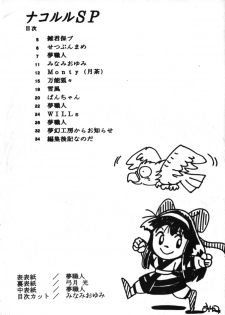 ナコルルSP
目次
5 雛君保プ
6 せつぶんまめ
7 夢職人
11 みなみおゆみ
12 Monty(月茶)
15 万能狐々
19 雪風
20 ばんちゃん
22 夢職人
24 WILLs
28 夢職人
32 夢幻工房からお知らせ
34 編集後記なのだ
表表紙/夢職人
裏表紙/弓月 光
中表紙/夢職人
目次カット/みなみおゆみ